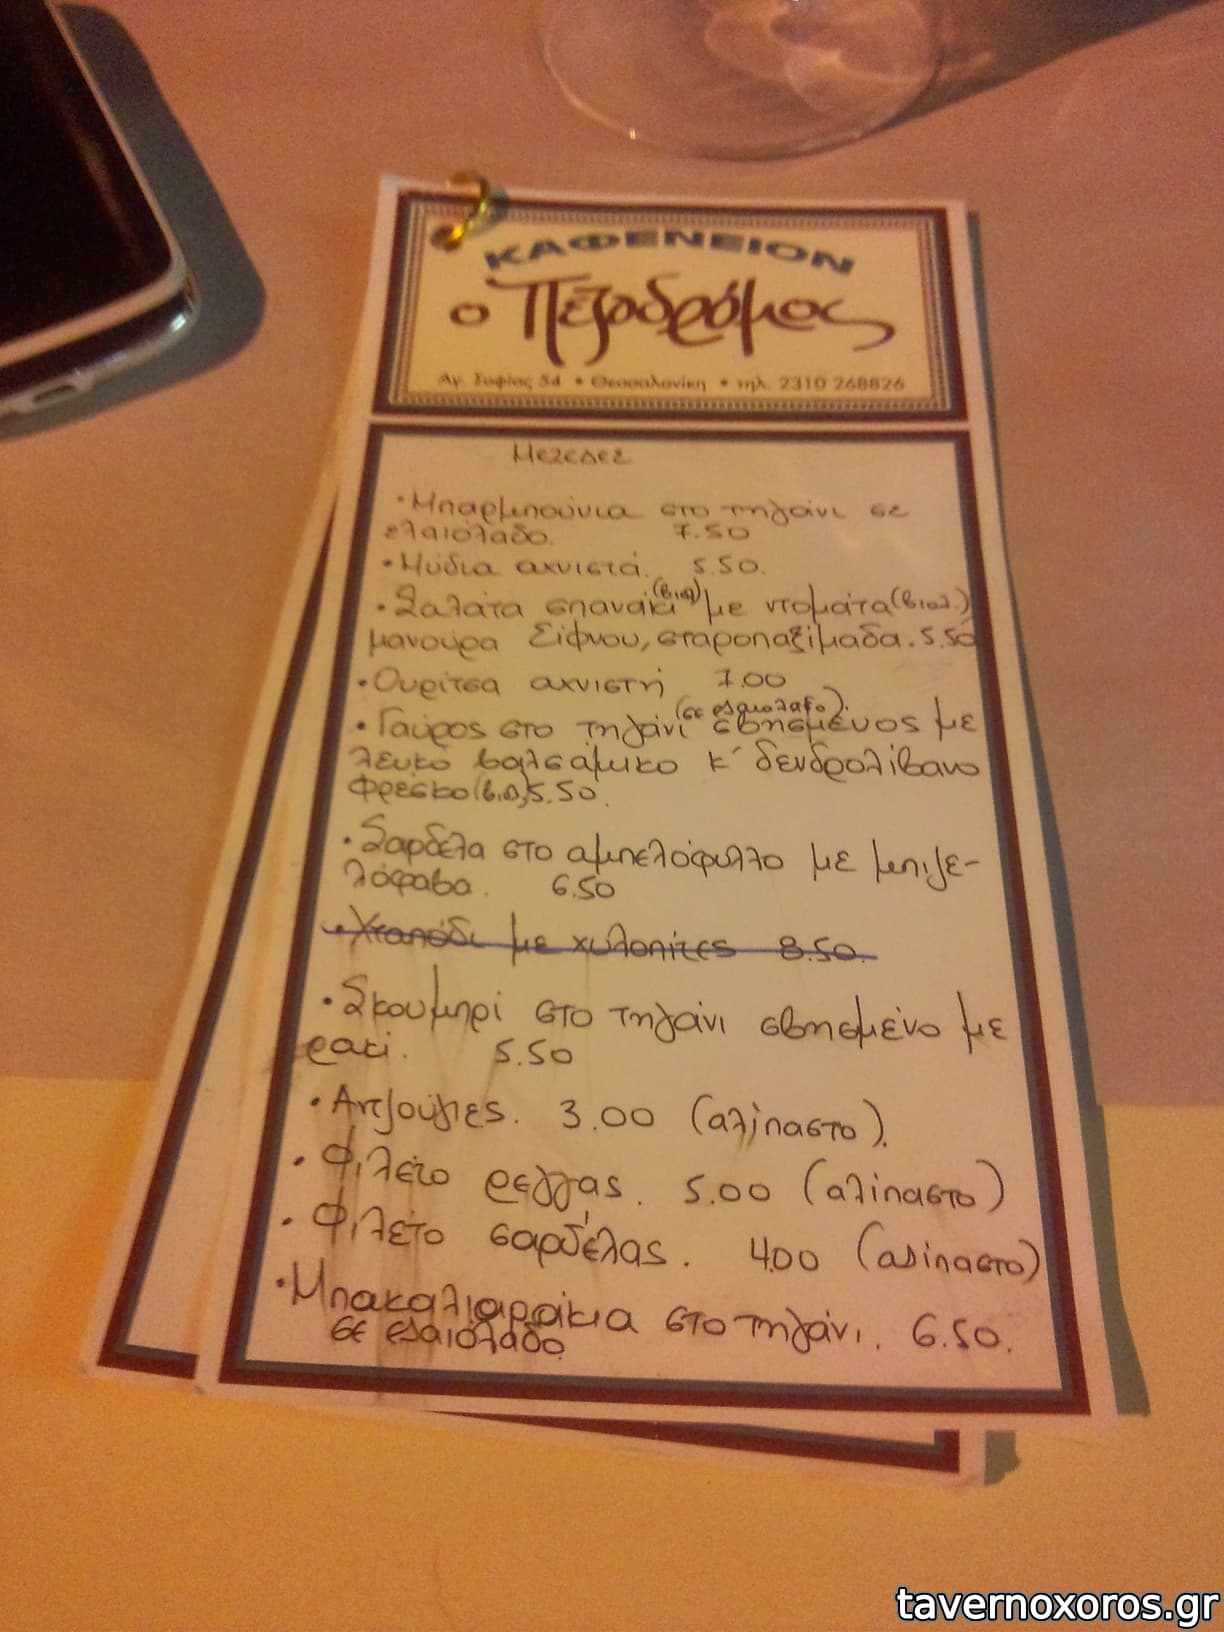 ΚΑΦΕΝΕΙΟΝ
ο Πεζοδρόμος
Αγ. Σοφίας 54 • Θεσσαλονίκη • τηλ. 2310 268826
Μεζεδες
• Μπαρμπούνια στο τηγάνι σε
ελαιόλαδο. 7.50
• Μύδια αχνιστά. 5.50.
• Σαλάτα σπανάκι (βιολ) με ντομάτα (βιολ.)
μανούρα Σίφνου, σταροπαξίμαδα. 5.50
• Ουρίτσα αχνιστή 7.00
• Γαύρος στο τηγάνι (σε ελαιολαδο). σβησμένος με
λευκο βαλσάμικο κ΄ δενδρολίβανο
φρέσκο 5.50.
• Σαρδέλα στο αμπελόφυλλο με μπιζε-
λόφαβα. 6.50
• Χταπόδι με χυλοπίτες 8.50.
• Σκουμπρί στο τηγάνι σβησμένο με
ρακί. 5.50
• Αντζούγιες. 3.00 (αλίπαστο).
• Φιλέτο ρέγγας. 5.00 (αλίπαστο)
• Φιλέτο σαρδέλας. 4.00 (αλίπαστο)
• Μπακαλιαράκια στο τηγάνι. 6.50.
σε ελαιόλαδο
tavernoxoros.gr